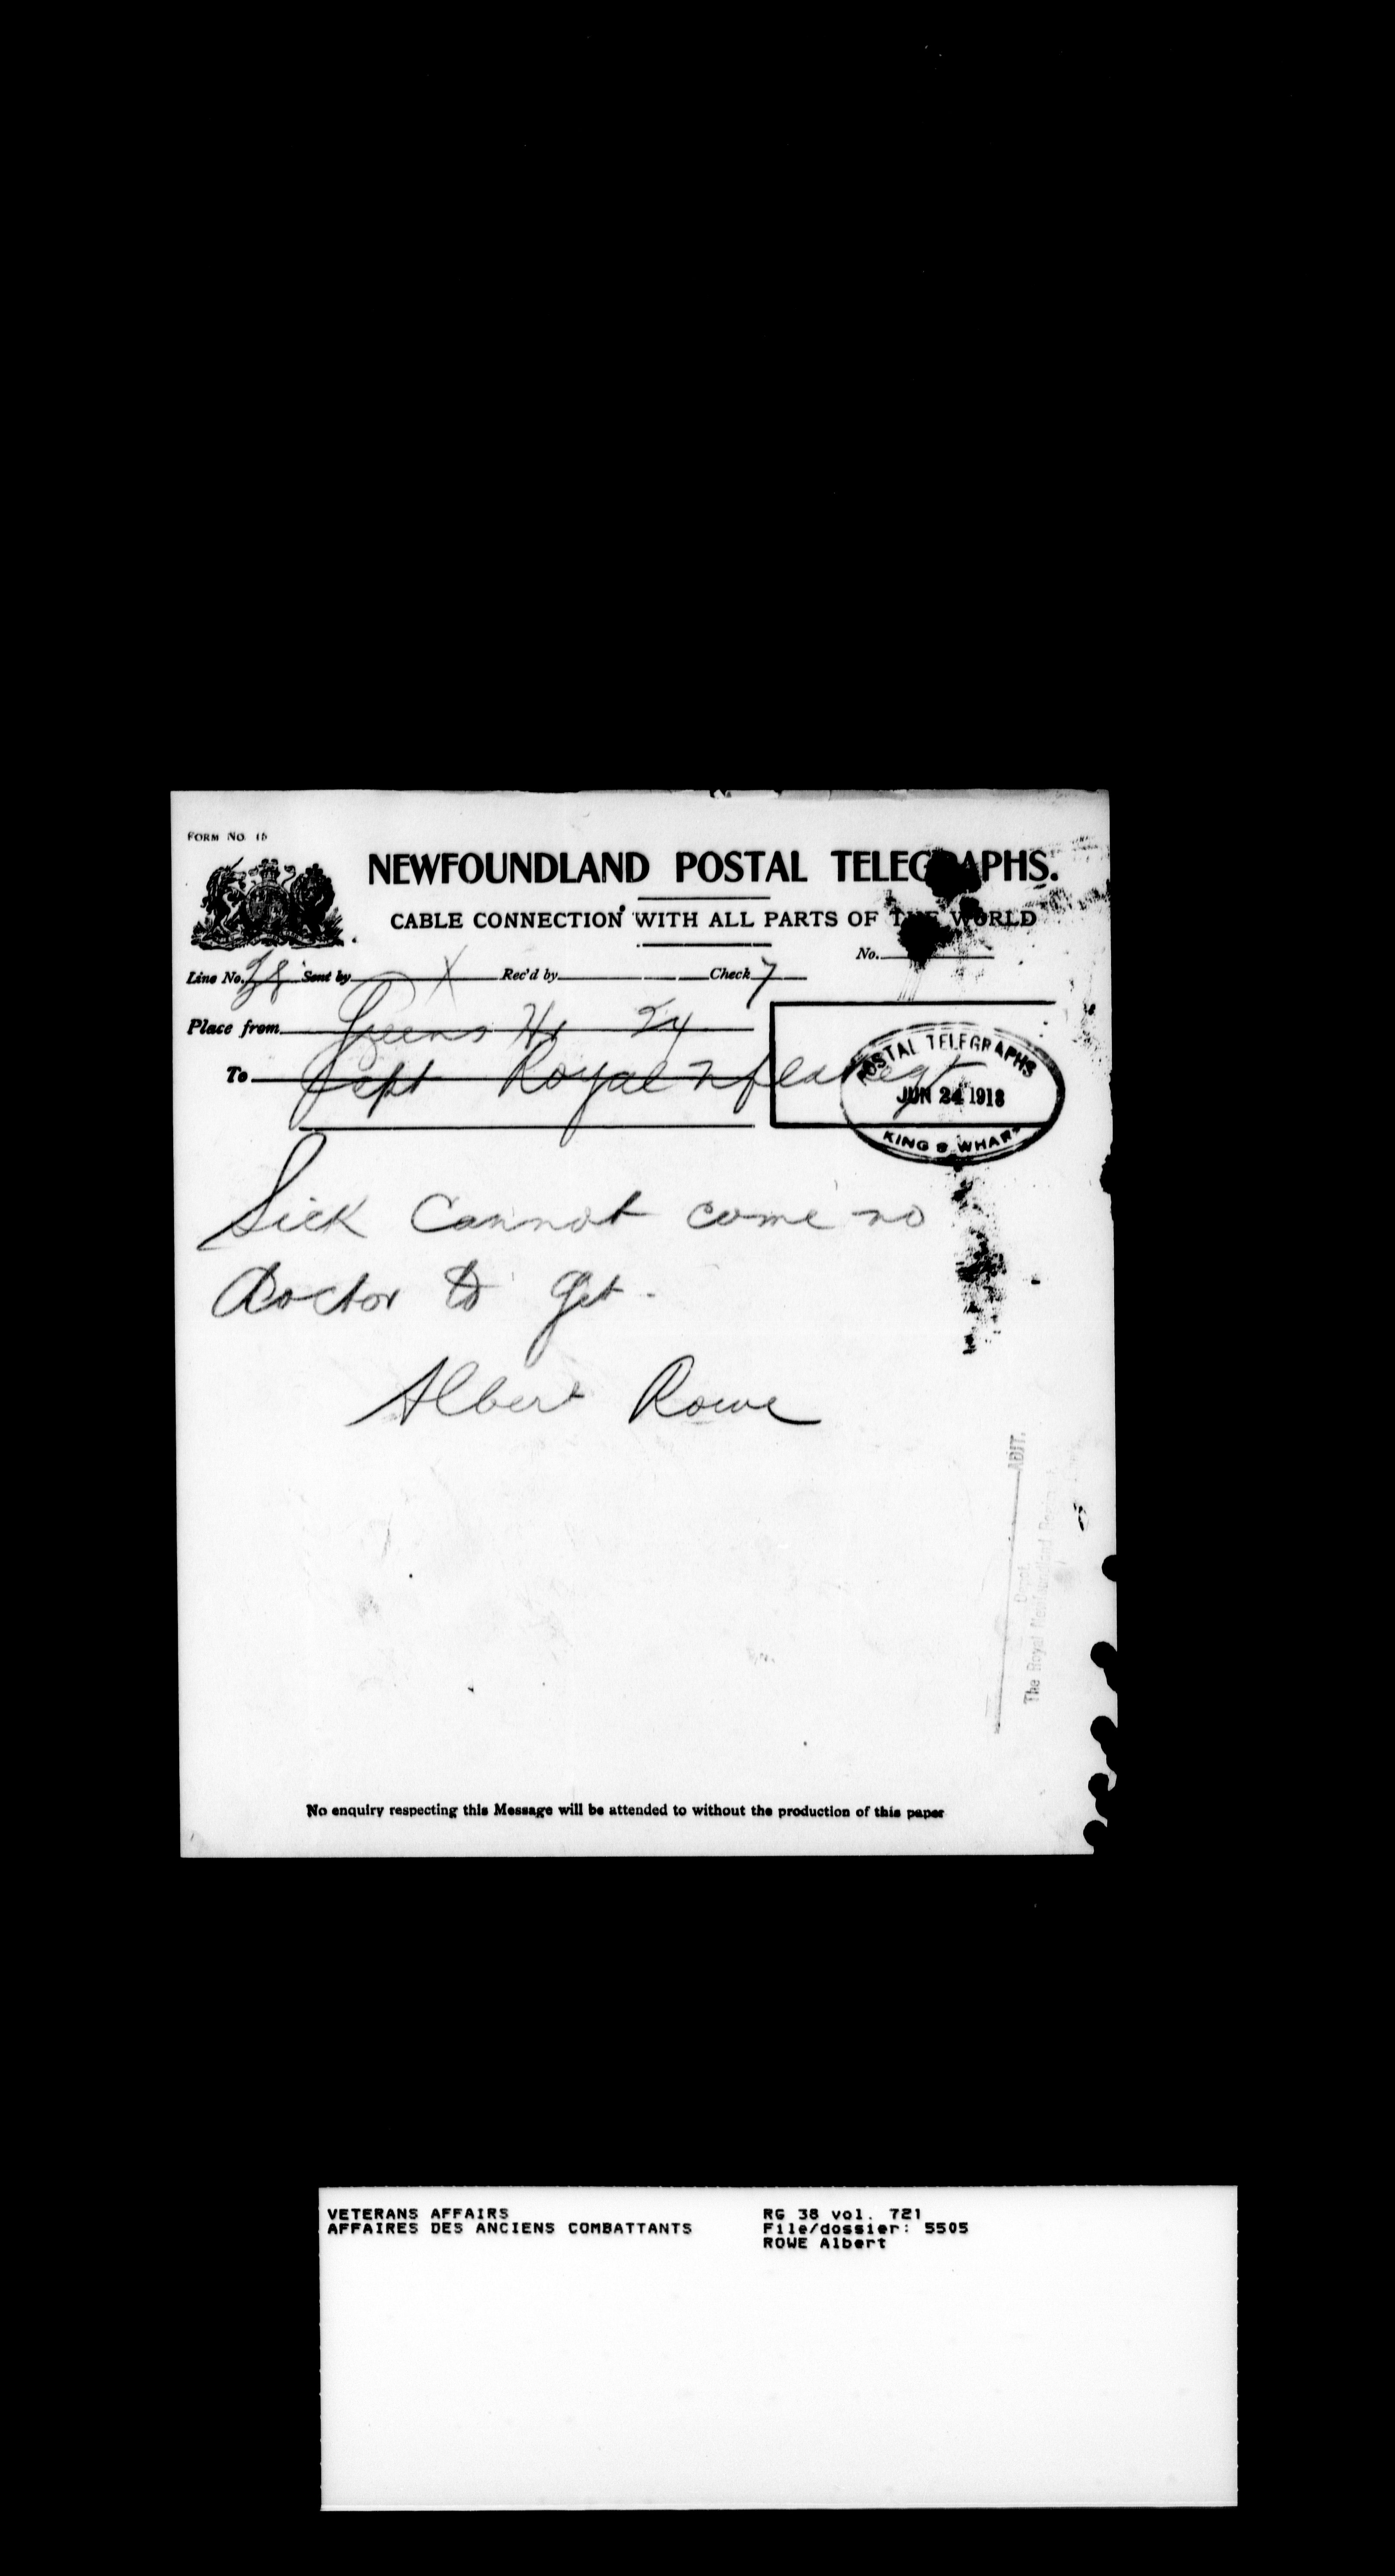 FORM NO. 15
NEWFOUNDLAND POSTAL TELEGRAPHS.
CABLE CONNECTION WITH ALL PARTS OF THE WORLD
No.
Line No. Sent by Rec'd by Check 7
Place from Greens Hr 24
To Dept Royal Nfld Regt
POSTAL TELEGRAPHS
JUN 24 1918
KING'S WHARF
Sick Cannot come no
Doctor to get.
Albert Rowe
ADJT.
Depot
The Royal Newfoundland
No enquiry respecting this Message will be attended to without the production of this paper
VETERANS AFFAIRS
AFFAIRES DES ANCIENS COMBATTANTS
RG 38 vol. 721
File/dossier: 5505
ROWE Albert